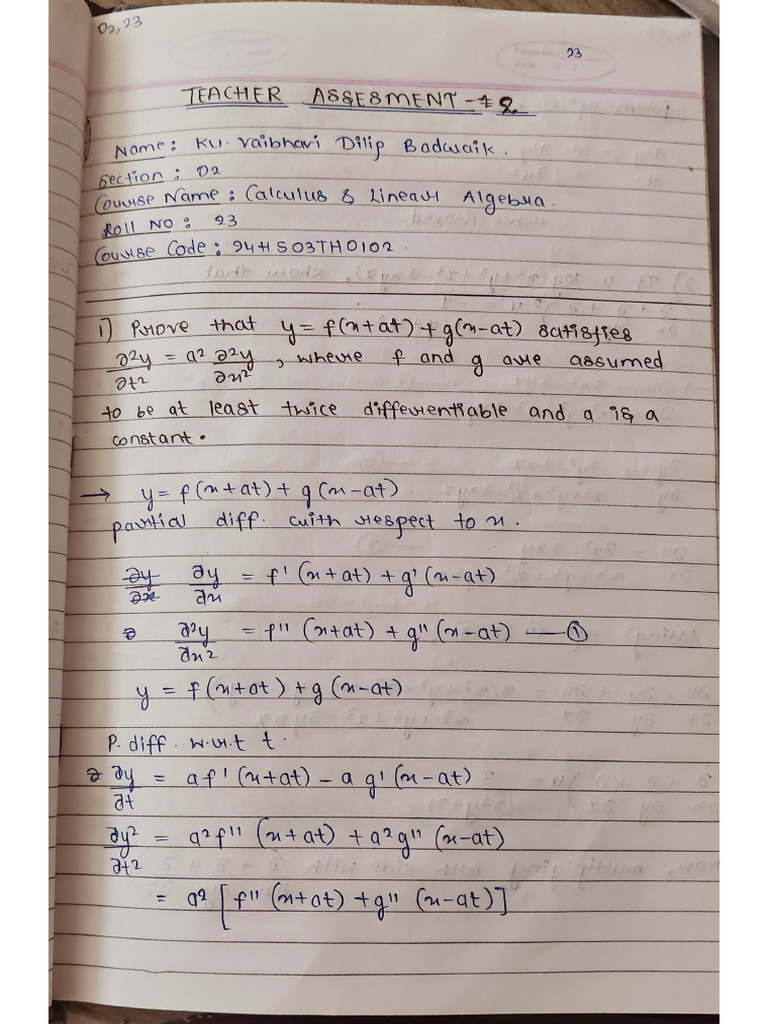 02,23
23
TEACHER ASSESMENT - # 2
Name: KU. Vaibhavi Dilip Badwaik.
Section: 02
Course Name: Calculus & Linear Algebra.
Roll No: 23
Course Code: 24HS03TH0102.
1) Prove that y = f(x+at) + g(x-at) satisfies
∂2y/∂t2 = a2 ∂2y/∂x2, where f and g are assumed
to be at least twice differentiable and a is a
constant.
→ y = f(x+at) + g(x-at)
partial diff. with respect to x.
∂y/∂x ∂y/∂x = f'(x+at) + g'(x-at)
∂ ∂2y/∂x2 = f"(x+at) + g"(x-at) — ①
y = f(x+at) + g(x-at)
P. diff. w.r.t t.
∂ ∂y/∂t = af'(x+at) - a g'(x-at)
∂y2/∂t2 = a2f"(x+at) + a2g"(x-at)
= a2[f"(x+at) + g"(x-at)]